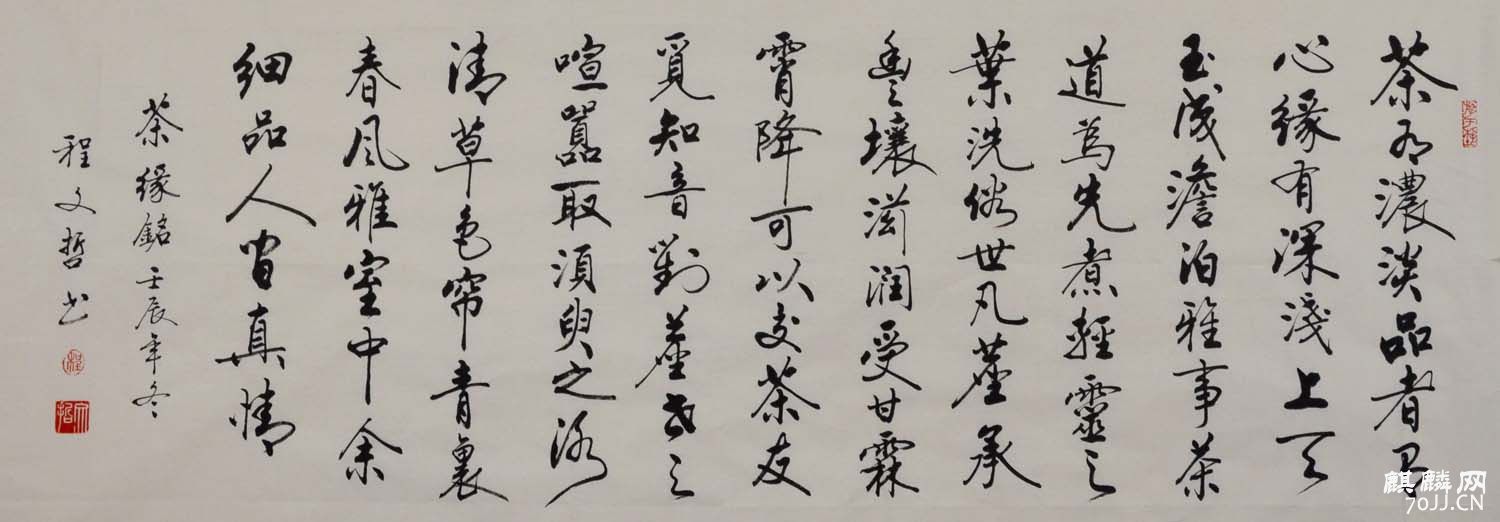 茶有濃淡品者只
心緣有深淺上天
玉成澹泊雅事茶
道為先煮輕靈之
葉洗俗世凡塵承
豐壤滋润受甘霖
霄降可以交茶友
覓知音對塵世之
喧囂取須臾之
清草色帘青裏
春風雅室中余
細品人間真情
茶緣銘壬辰年冬
程文哲书
麒麟网
70JJ.CN